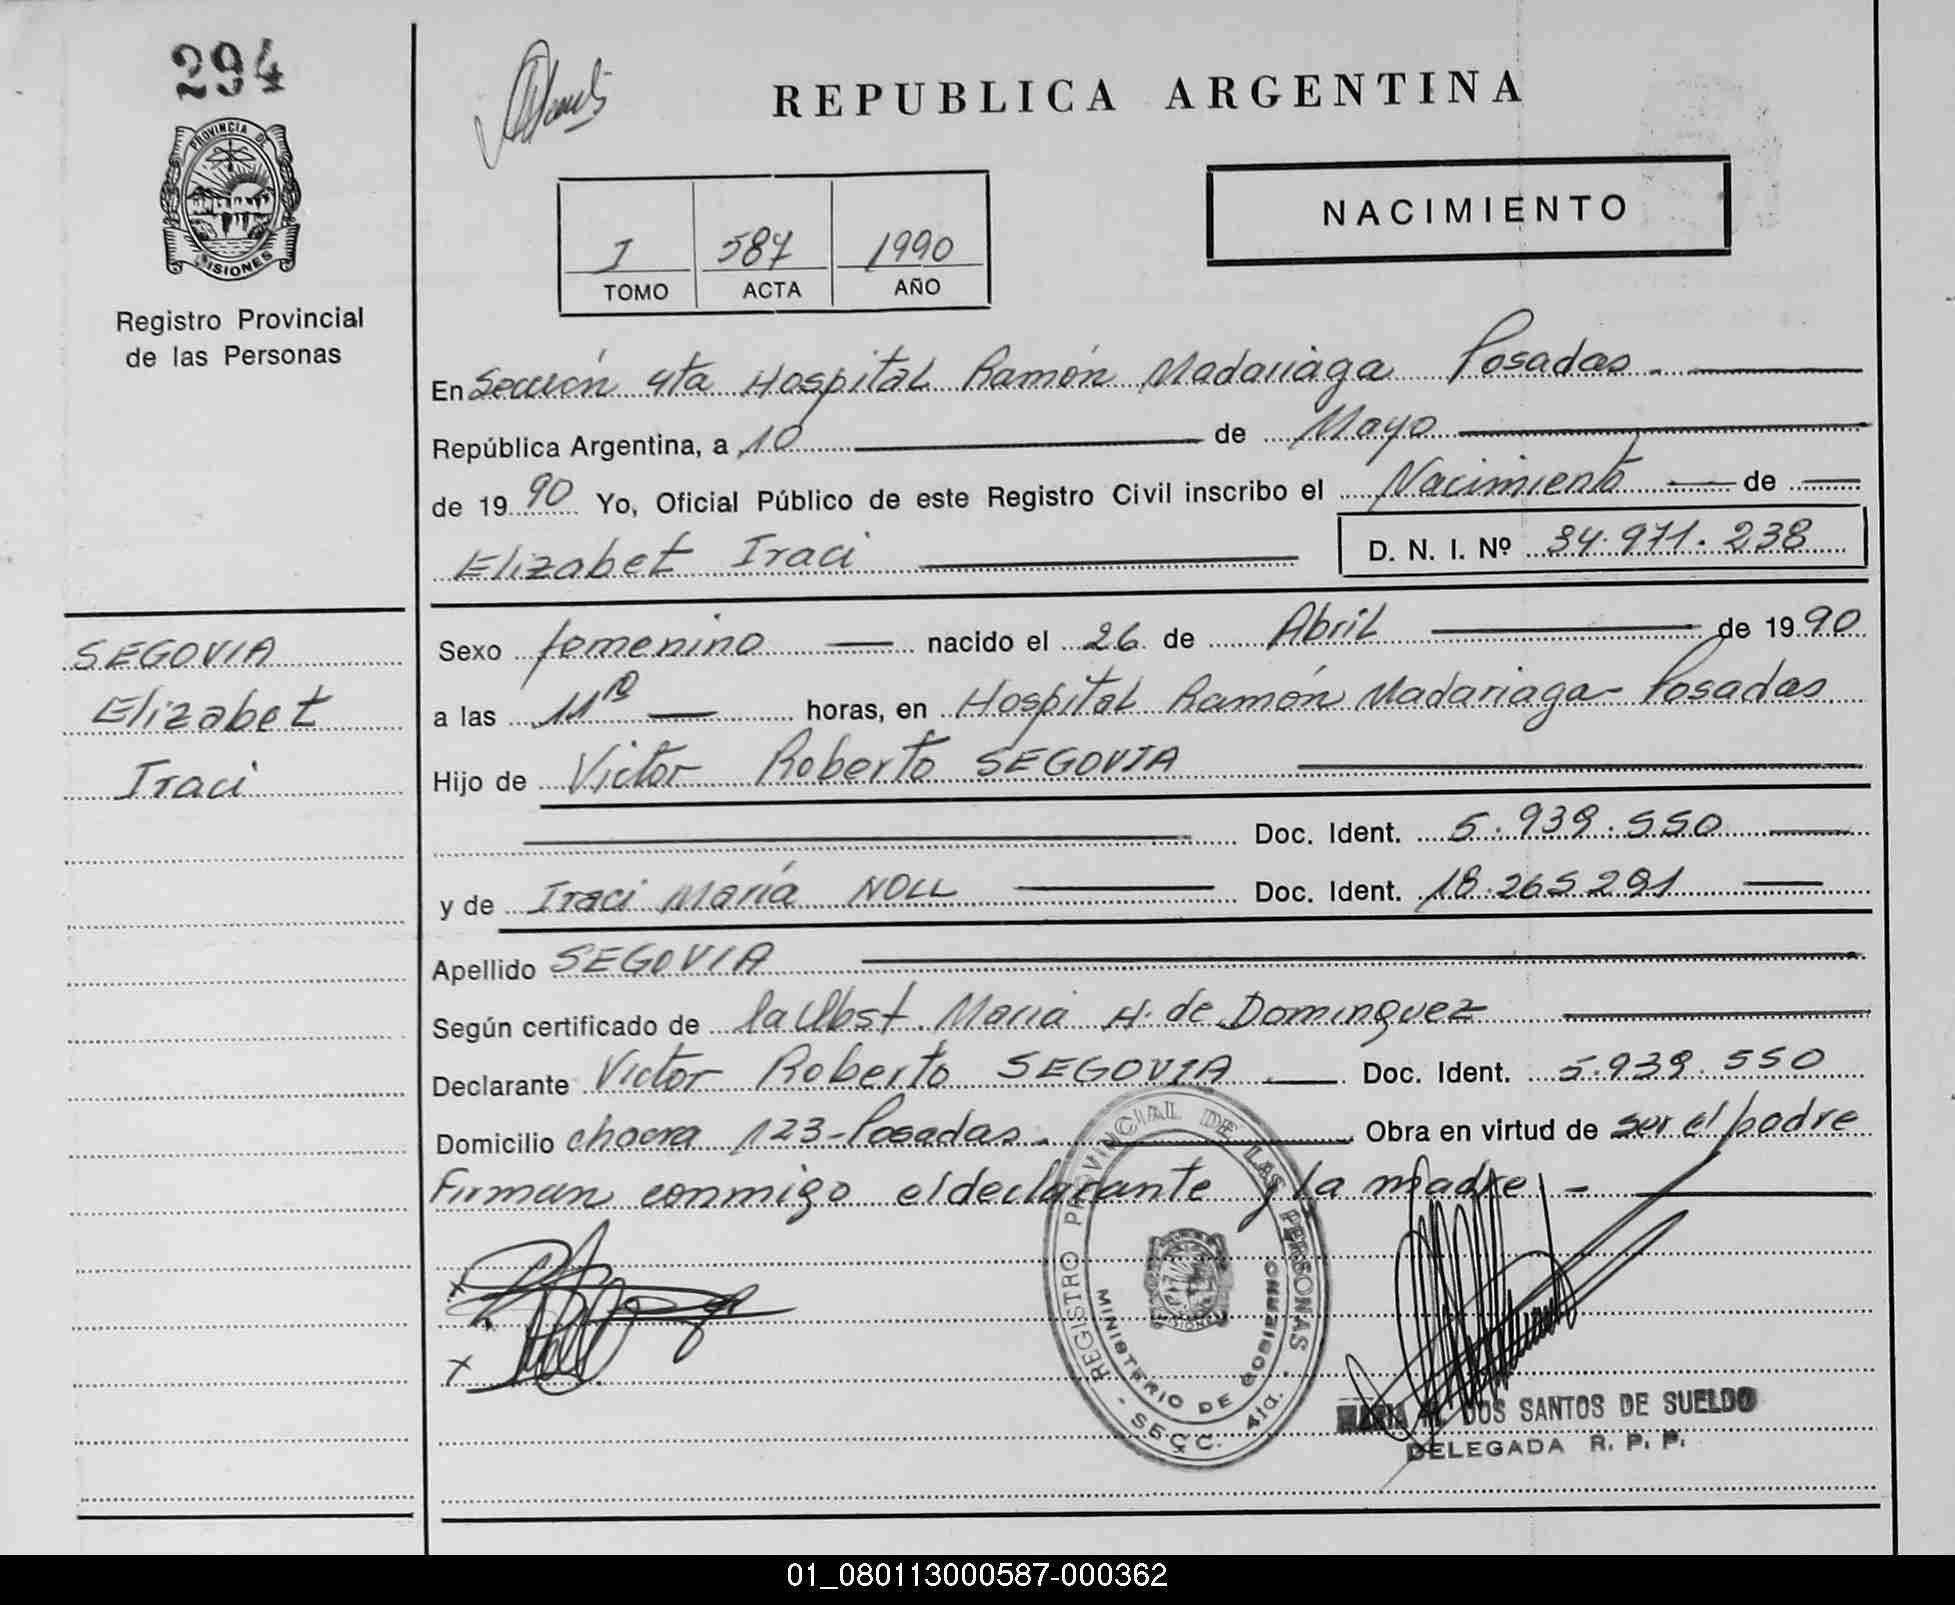 294
PROVINCIA DE
MISIONES
Registro Provincial
de las Personas
REPUBLICA ARGENTINA
NACIMIENTO
I 587 1990
TOMO ACTA AÑO
En Sección 4ta Hospital Ramón Madariaga Posadas.
República Argentina, a 10 de Mayo
de 1990 Yo, Oficial Público de este Registro Civil inscribo el Nacimiento de
Elizabet Iraci D. N. I. Nº 34.971.238
SEGOVIA
Elizabet
Iraci
Sexo femenino nacido el 26 de Abril de 1990
a las 11 horas, en Hospital Ramón Madariaga - Posadas
Hijo de Victor Roberto SEGOVIA
Doc. Ident. 5.939.550
y de Iraci María NOLL Doc. Ident. 18.265291
Apellido SEGOVIA
Según certificado de la Obst. Maria H. de Dominguez
Declarante Victor Roberto SEGOVIA Doc. Ident. 5.939.550
Domicilio chacra 123-Posadas. Obra en virtud de ser el padre
Firman conmigo el declarante y la madre -
REGISTRO PROVINCIAL DE LAS PERSONAS
MINISTERIO DE GOBIERNO
- SECC. 4ta. -
MARIA DOS SANTOS DE SUELDO
DELEGADA R. P. P.
01_080113000587-000362